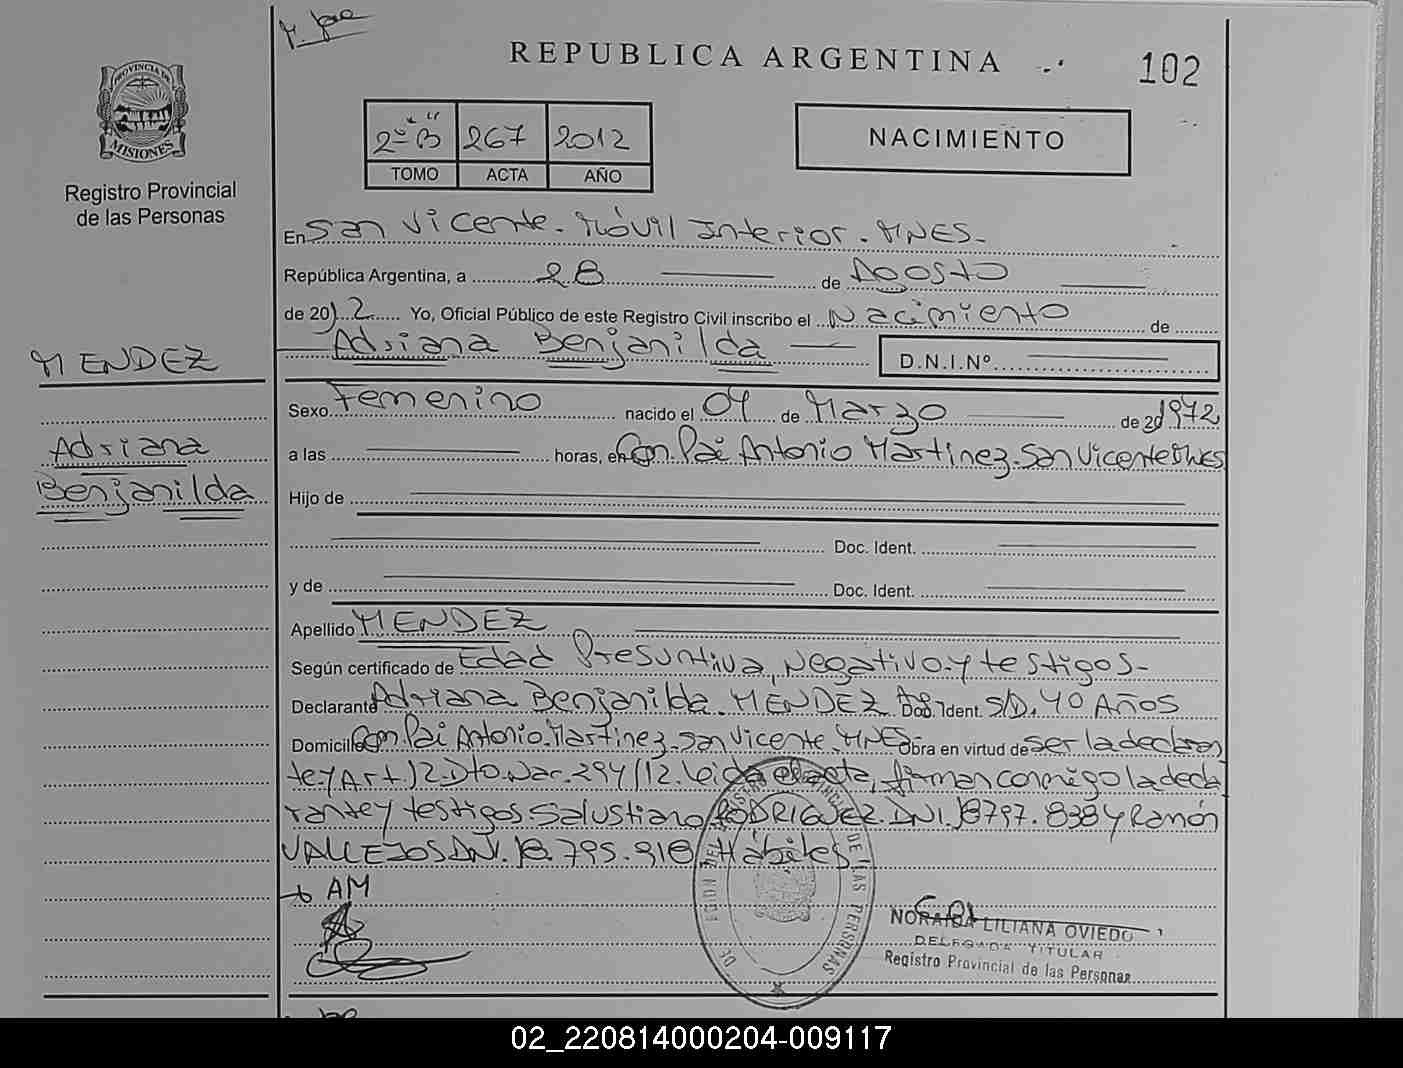 REPUBLICA ARGENTINA
102
PROVINCIA DE
MISIONES
Registro Provincial
de las Personas
2º "B" 267 2012
TOMO ACTA AÑO
NACIMIENTO
En San Vicente. Móvil Interior. MNES-
República Argentina, a 28 de Agosto
de 2012 Yo, Oficial Público de este Registro Civil inscribo el Nacimiento de
Adriana Benjanilda D.N.I.Nº
MENDEZ
Adriana
Benjanilda
Sexo Femenino nacido el 04 de Marzo de 201972
a las horas, en Com. Pai Antonio Martinez. San Vicente MNES
Hijo de
Doc. Ident.
y de Doc. Ident.
Apellido MENDEZ
Según certificado de Edad Presuntiva, Negativo y testigos-
Declarante Adriana Benjanilda. MENDEZ Doc. Ident. S/D. 40 Años
Domicilio Com. Pai Antonio. Martinez. San Vicente. MNES- Obra en virtud de ser la declaran
te y Art. 12. Dto. Nac. 294/12. Leida el acta, firman conmigo la decla
rante y testigos Salustiano RODRIGUEZ. DNI. 18797.838 y Ramón
VALLEJOS DNI. 18.795.918. Hábiles
AM
NORAIDA LILIANA OVIEDO
DELEGADA TITULAR
Registro Provincial de las Personas
DE LAS PERSONAS
02_220814000204-009117